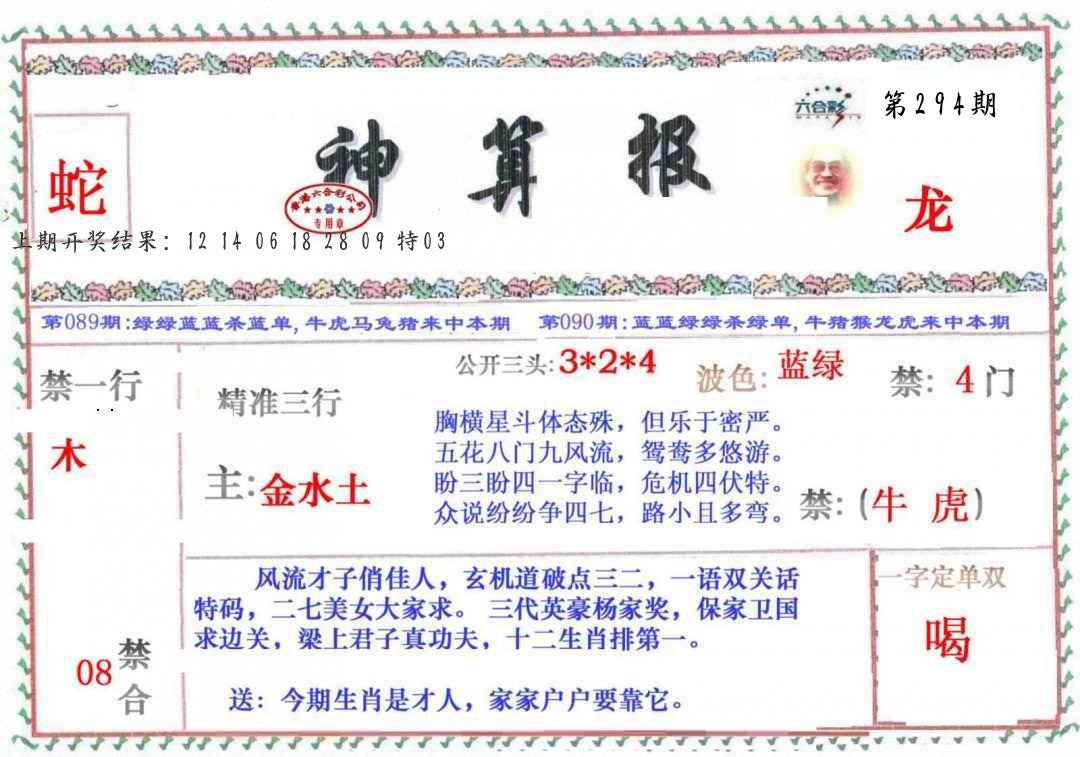 六合彩
第294期
神算报
蛇
龙
香港六合彩公司
专用章
上期开奖结果: 12 14 06 18 28 09 特03
第089期:绿绿蓝蓝杀蓝单,牛虎马兔猪来中本期 第090期:蓝蓝绿绿杀绿单,牛猪猴龙虎来中本期
禁一行
木
精准三行
主:金水土
公开三头:3*2*4
波色:蓝绿
禁: 4门
胸横星斗体态殊，但乐于密严。
五花八门九风流，鸳鸯多悠游。
盼三盼四一字临，危机四伏特。
众说纷纷争四七，路小且多弯。
禁:(牛 虎)
08禁合
风流才子俏佳人，玄机道破点三二，一语双关话
特码，二七美女大家求。三代英豪杨家奖，保家卫国
求边关，梁上君子真功夫，十二生肖排第一。
送：今期生肖是才人，家家户户要靠它。
一字定单双
喝